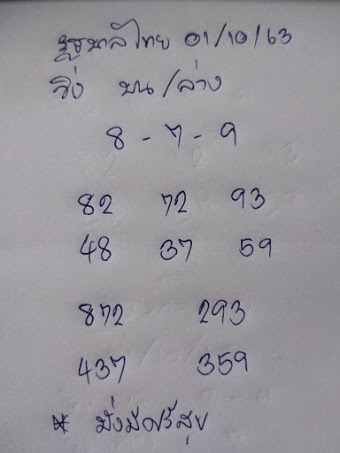 รัฐบาลไทย 01/10/63
วิ่ง บน/ล่าง
8 - 7 - 9
82 72 93
48 37 59
872 293
437 359
* มั่งมีศรีสุข